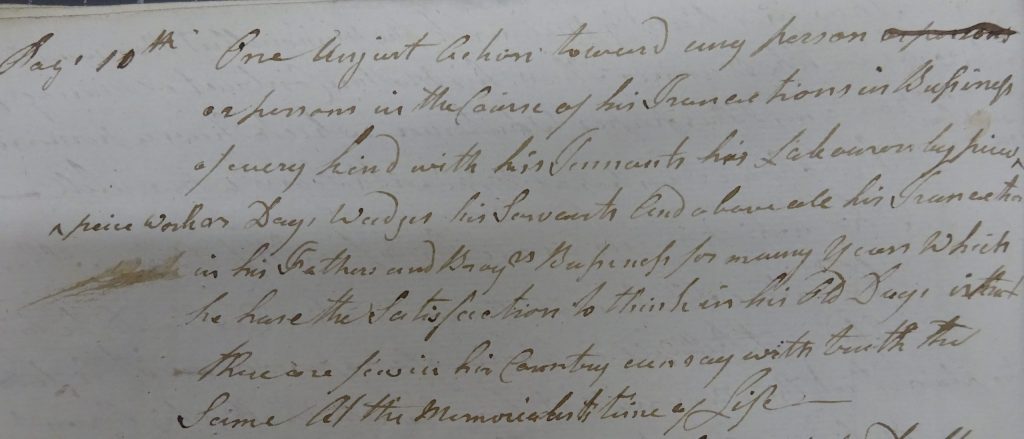 Pag: 10th One Unjust Action toward any person or persons
or persons in the Course of his Trancactions in Bussiness
of every kind with his Tennants his Labourers by piece
piece work or Days Wadges his Servants And above all his Tranaction
in his Fathers and Brayrs Bussiness for many Years Which
he have the Satisfaction to think in his Old Days is that
there are few in his Country can say with truth the
Same At the Memorialist time of Life